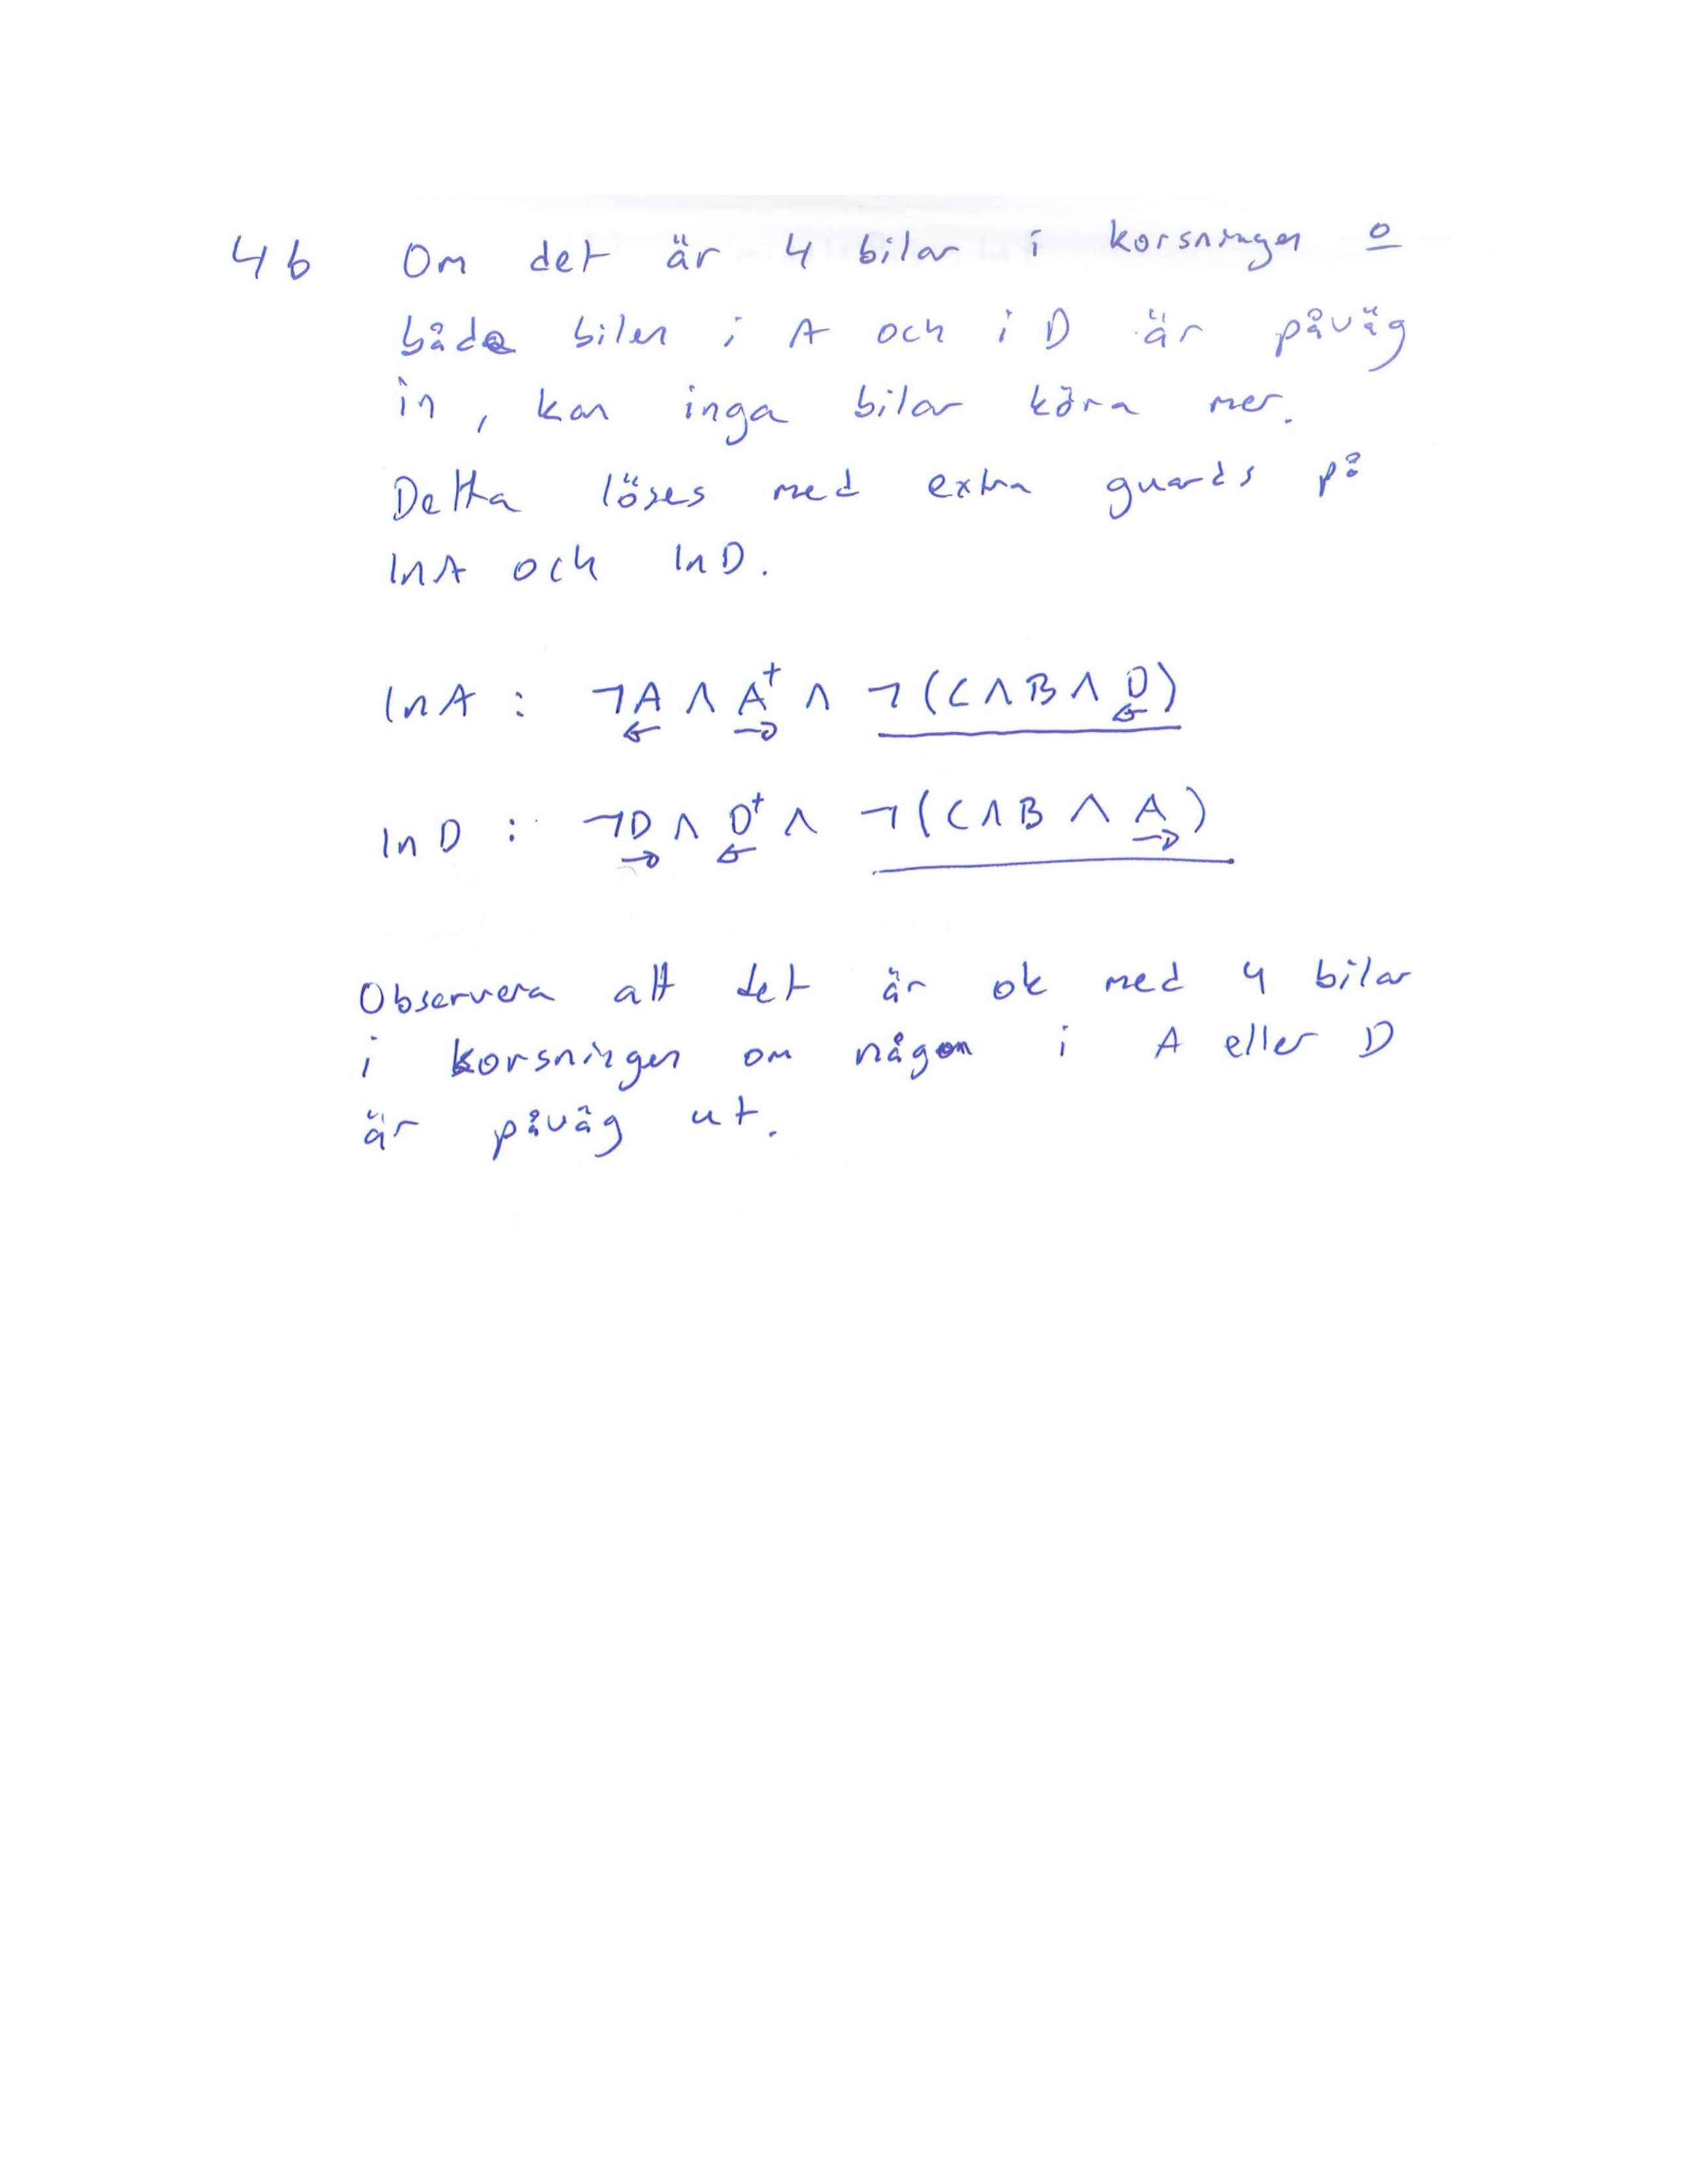 4b Om det är 4 bilar i korsningen o
både bilen i A och i D är påväg
in, kan inga bilar köra mer.
Detta löses med extra guards på
InA och InD.
InA : ¬A← ∧ A→⁺ ∧ ¬(C∧B∧D←)
InD : ¬D→ ∧ D←⁺ ∧ ¬(C∧B∧A→)
Observera att det är ok med 4 bilar
i korsningen om någon i A eller D
är påväg ut.